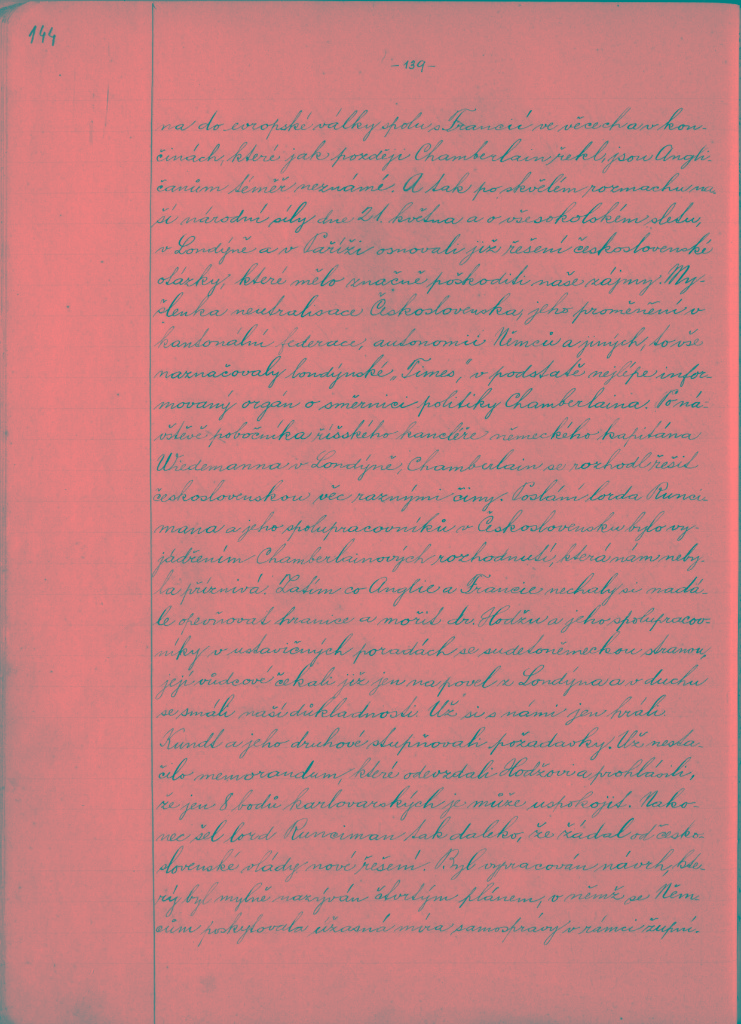 144
- 139 -
na do evropské války spolu s Francií ve věcech a v kon-
činách, které jak později Chamberlain řekl, jsou Angli-
čanům téměř neznámé. A tak po skvělém rozmachu na-
ší národní síly dne 21. května a o všesokolském sletu,
v Londýně a v Paříži osnovali již řešení československé
otázky, které mělo značně poškoditi naše zájmy. My-
šlenka neutralisace Československa, jeho proměnění v
kantonální federace, autonomii Němců a jiných, to vše
naznačovaly londýnské „Times", v podstatě nejlépe infor-
movaný orgán o směrnici politiky Chamberlaina. Po ná-
vštěvě pobočníka říšského kancléře německého kapitána
Wiedemanna v Londýně, Chamberlain se rozhodl řešit
československou věc raznými činy. Poslání lorda Runci-
mana a jeho spolupracovníků v Československu bylo vy-
jádřením Chamberlainových rozhodnutí, která nám neby-
la příznivá. Zatím co Anglie a Francie nechaly si nadá-
le opevňovat hranice a mořit dr. Hodžu a jeho spolupracov-
níky v ustavičných poradách se sudetoněmeckou stranou,
její vůdcové čekali již jen na povel z Londýna a v duchu
se smáli naší důkladnosti. Už si s námi jen hráli.
Kundt a jeho druhové stupňovali požadavky. Už nesta-
čilo memorandum, které odevzdali Hodžovi a prohlásili,
že jen 8 bodů karlovarských je může uspokojit. Nako-
nec šel lord Runciman tak daleko, že žádal od česko-
slovenské vlády nové řešení. Byl vypracován návrh, kte-
rý byl mylně nazýván čtvrtým plánem, v němž se Něm-
cům poskytovala úžasná míra samosprávy v rámci župní-